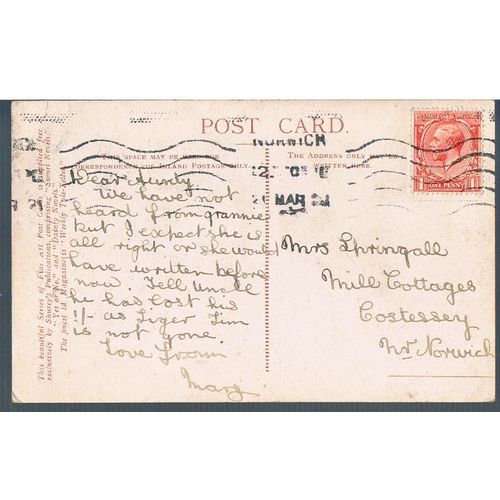 POST CARD.
NORWICH
THIS SPACE MAY BE USED FOR
CORRESPONDENCE FOR INLAND POSTAGE ONLY.
THE ADDRESS ONLY MAY BE
WRITTEN HERE.
MAR
ONE PENNY
Dear Aunty
We have not
heard from grannie
but I expect she is
all right or she would
have written before
now. Tell Uncle
he has lost his
1/- as Tiger Tim
is not gone.
Love from
Mary
Mrs Springall
Mill Cottages
Costessey
Nr Norwich
This beautiful Series of Fine Art Post Cards is supplied free
exclusively by Shurey's Publications, comprising "Smart Novels,"
"Yes or No," and "Dainty Novels."
The finest 1d Magazine is "Weekly Tale-Teller."